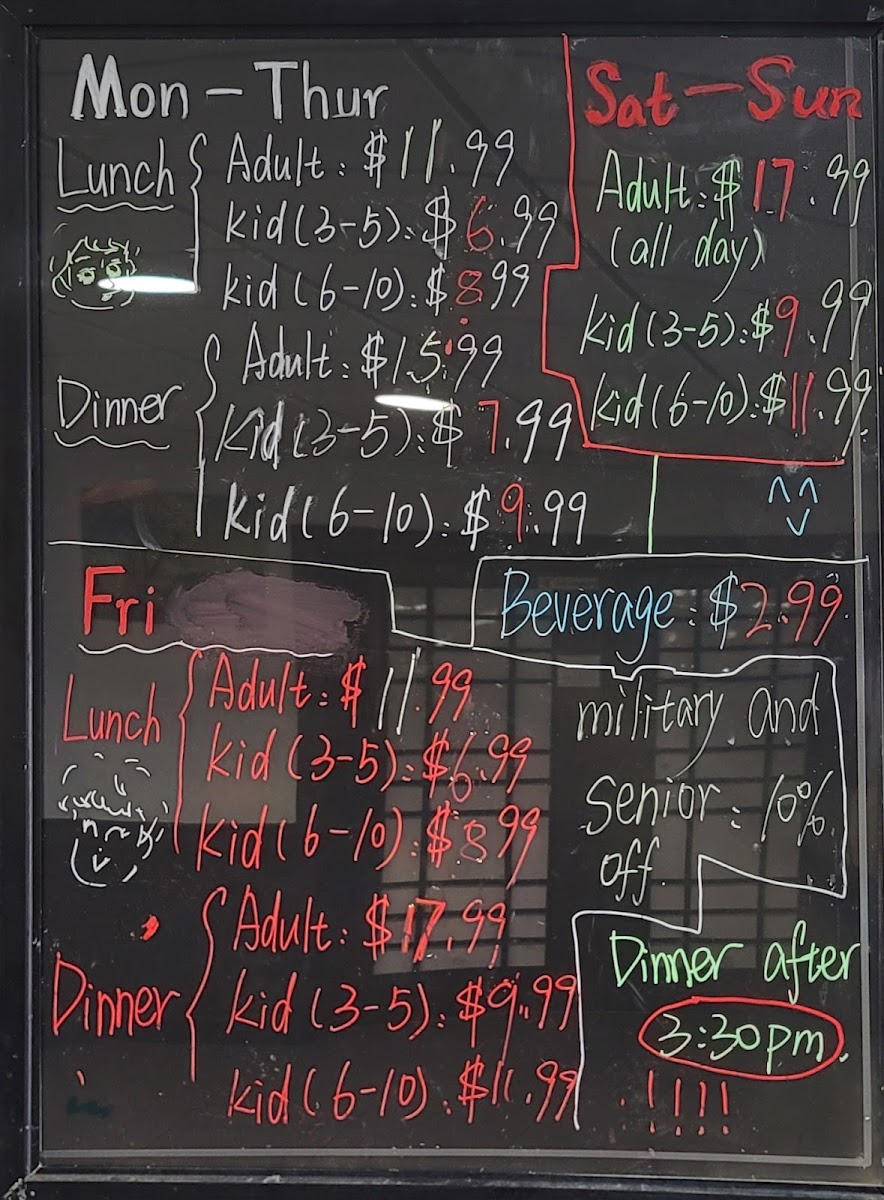 Mon - Thur
Lunch
Adult: $11.99
kid (3-5): $6.99
kid (6-10): $8.99
Dinner
Adult: $15.99
kid (3-5): $7.99
kid (6-10): $9.99
Sat - Sun
Adult: $17.99
(all day)
kid (3-5): $9.99
kid (6-10): $11.99
Fri
Lunch
Adult: $11.99
kid (3-5): $6.99
kid (6-10): $8.99
Dinner
Adult: $17.99
kid (3-5): $9.99
kid (6-10): $11.99
Beverage: $2.99
military and
Senior: 10%
off.
Dinner after
3:30pm.
!!!!